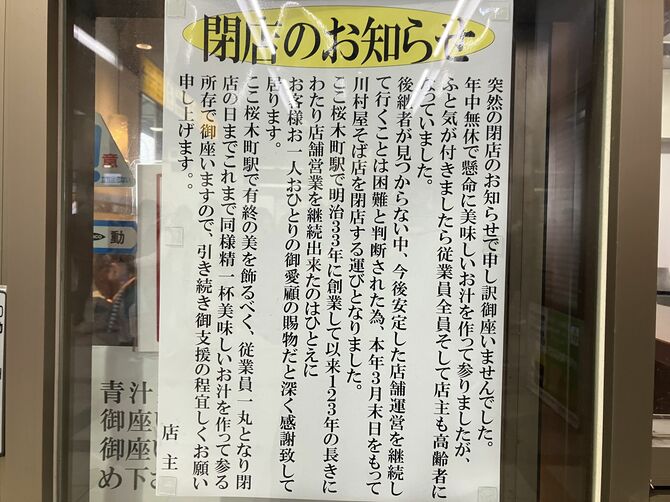 閉店のお知らせ
突然の閉店のお知らせで申し訳御座いませんでした。
年中無休で懸命に美味しいお汁を作って参りましたが、
ふと気が付きましたら従業員全員そして店主も高齢者に
なっていました。
後継者が見つからない中、今後安定した店舗運営を継続し
て行くことは困難と判断された為、本年3月末日をもって
川村屋そば店を閉店する運びとなりました。
ここ桜木町駅で明治33年に創業して以来123年の長きに
わたり店舗営業を継続出来たのはひとえに
お客様お一人おひとりの御愛顧の賜物だと深く感謝致して
居ります。
ここ桜木町駅で有終の美を飾るべく、従業員一丸となり閉
店の日までこれまで同様精一杯美味しいお汁を作って参る
所存で御座いますので、引き続き御支援の程宜しくお願い
申し上げます。。
店主
動
青汁
御座
御座
め下